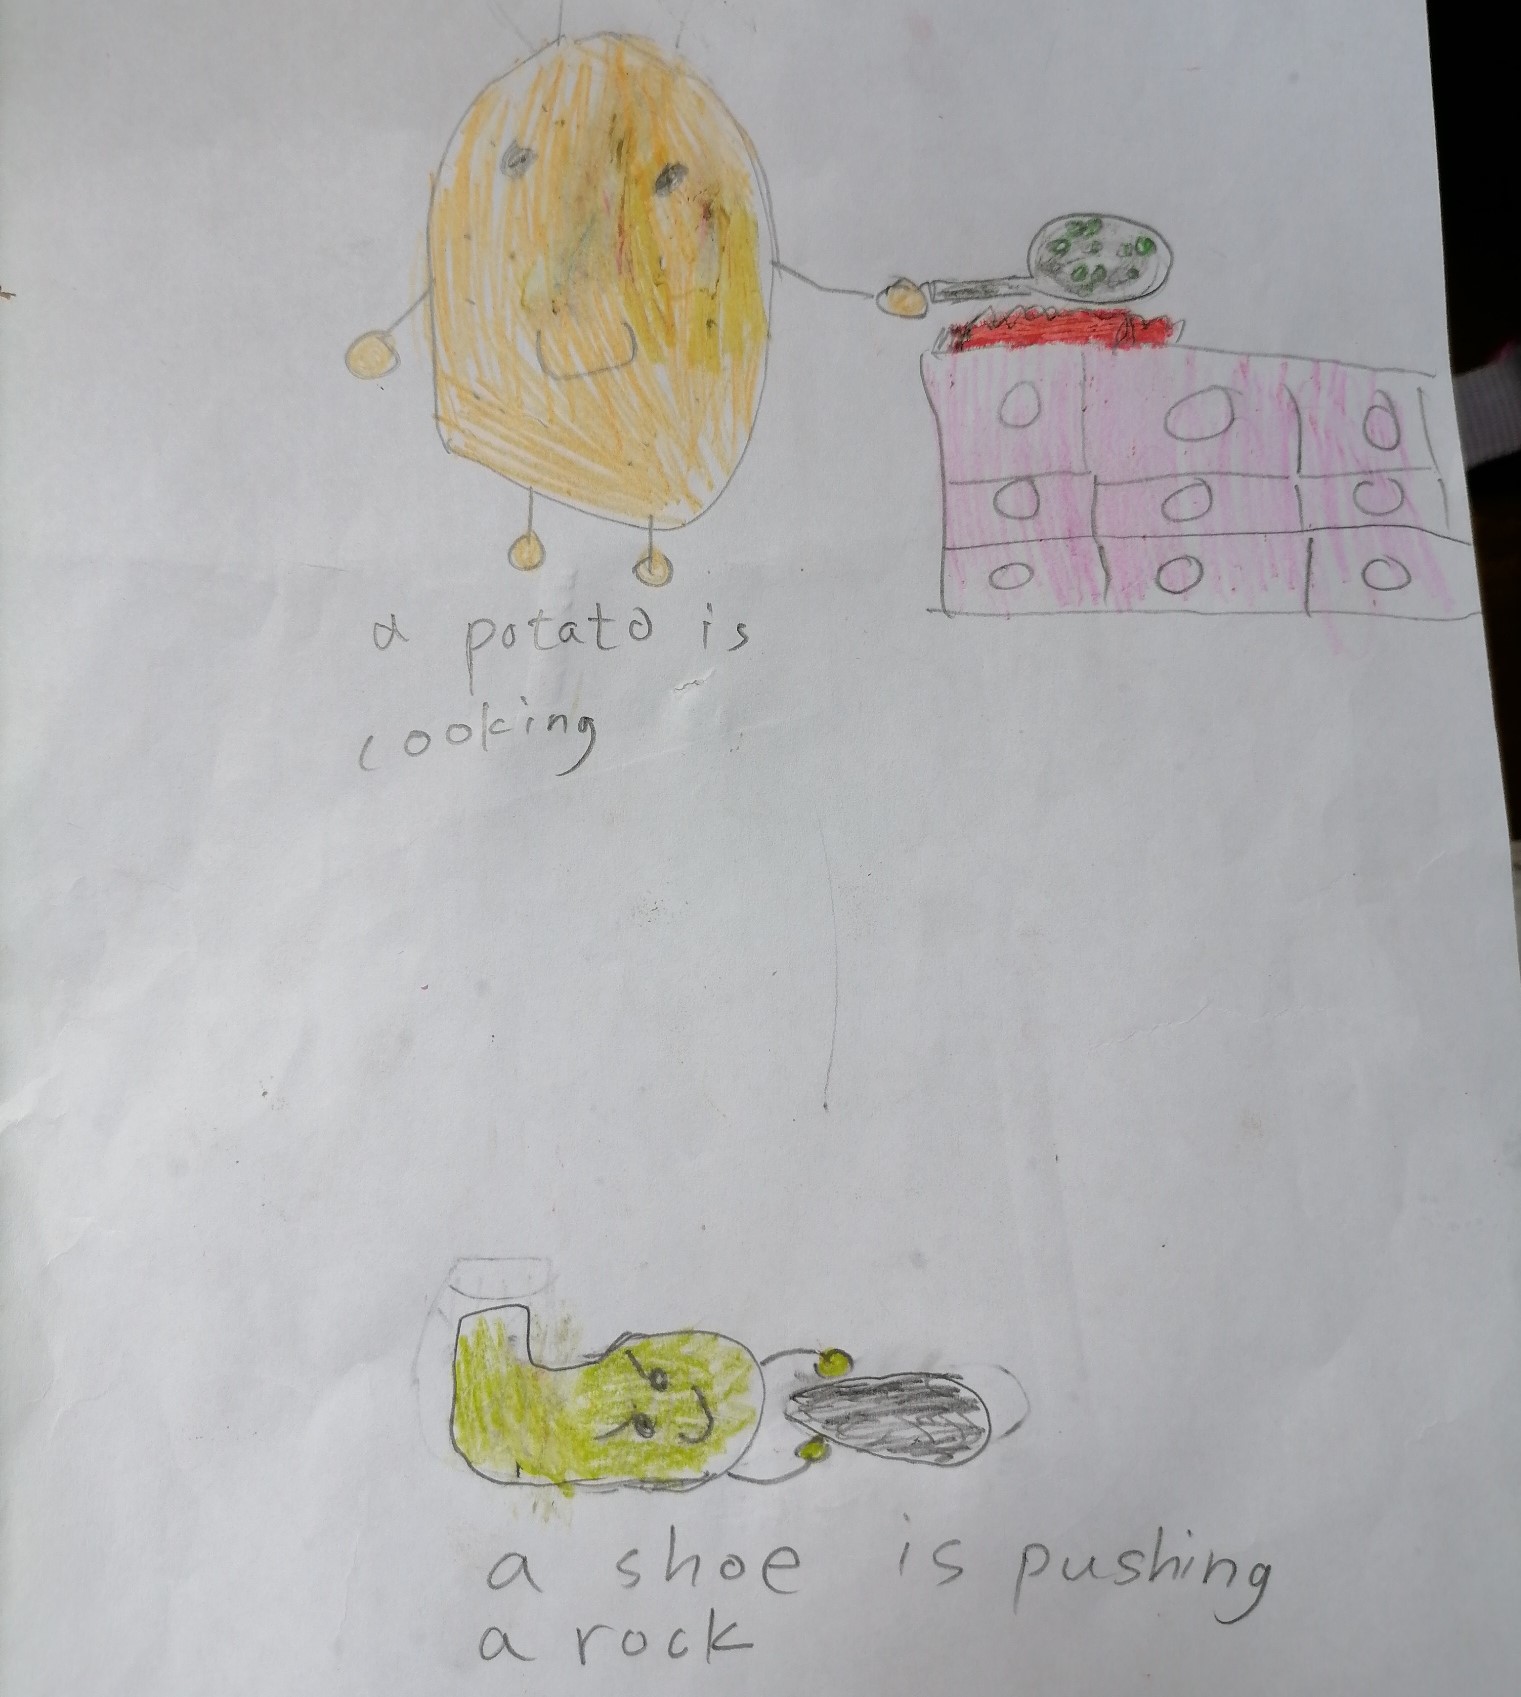 a potato is
cooking
a shoe is pushing
a rock